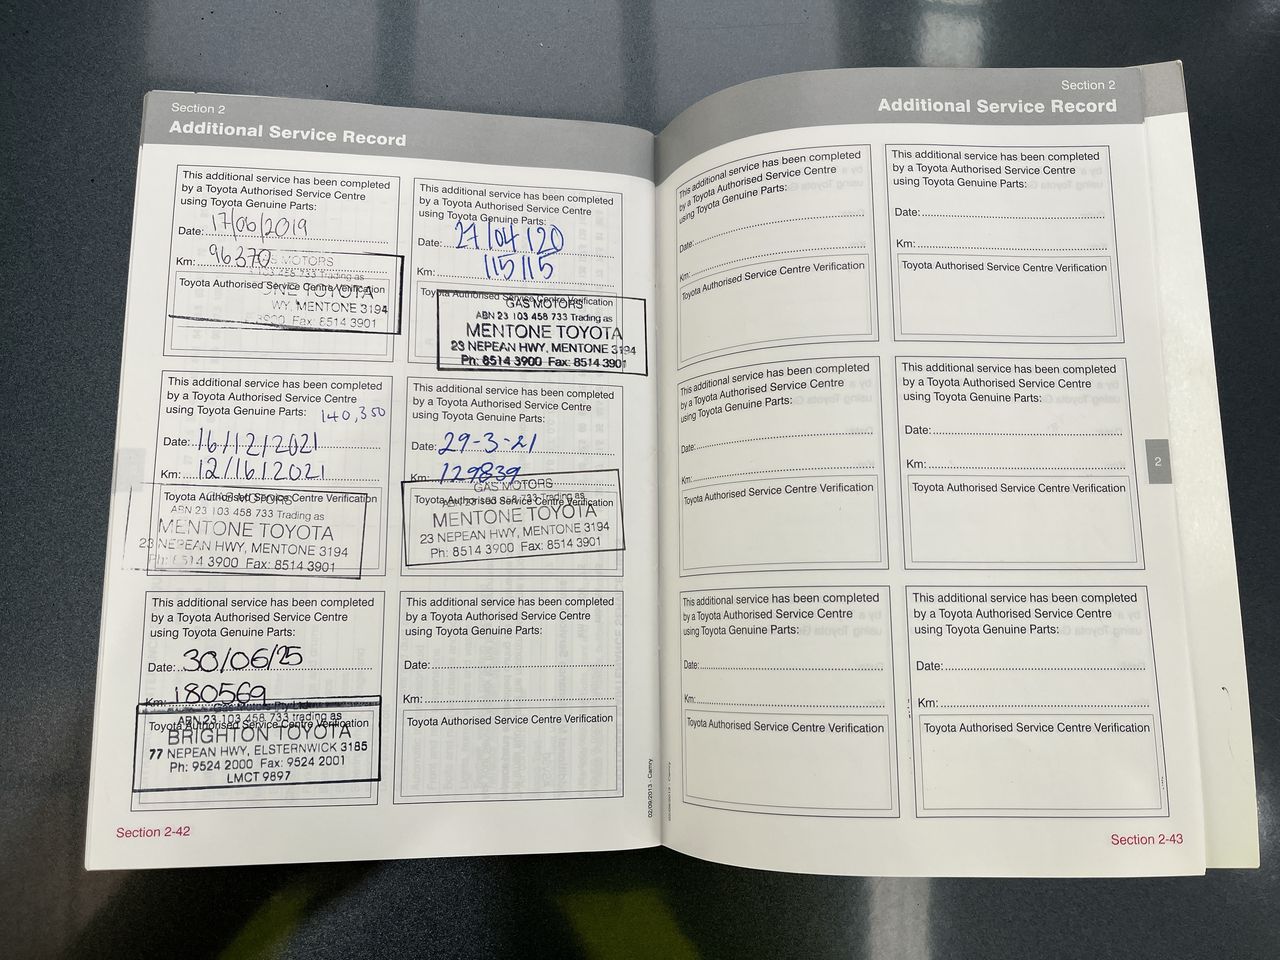 Section 2
Additional Service Record
This additional service has been completed
by a Toyota Authorised Service Centre
using Toyota Genuine Parts:
Date: 17/06/2019
Km: 96370
MOTORS
458 733 Trading as
Toyota Authorised Service Centre Verification
TOYOTA
WY, MENTONE 3194
3900 Fax: 8514 3901
This additional service has been completed
by a Toyota Authorised Service Centre
using Toyota Genuine Parts:
Date: 27/04/20
Km: 115115
Toyota Authorised Service Centre Verification
GAS MOTORS
ABN 23 103 458 733 Trading as
MENTONE TOYOTA
23 NEPEAN HWY, MENTONE 3194
Ph: 8514 3900 Fax: 8514 3901
This additional service has been completed
by a Toyota Authorised Service Centre
using Toyota Genuine Parts: 140,350
Date: 16/12/2021
Km: 12/16/2021
Toyota Authorised Service Centre Verification
MOTORS
ABN 23 103 458 733 Trading as
MENTONE TOYOTA
23 NEPEAN HWY, MENTONE 3194
Ph: 8514 3900 Fax: 8514 3901
This additional service has been completed
by a Toyota Authorised Service Centre
using Toyota Genuine Parts:
Date: 29-3-21
Km: 129839
GAS MOTORS
Toyota Authorised Service Centre Verification
ABN 23 103 458 733 Trading as
MENTONE TOYOTA
23 NEPEAN HWY, MENTONE 3194
Ph: 8514 3900 Fax: 8514 3901
This additional service has been completed
by a Toyota Authorised Service Centre
using Toyota Genuine Parts:
Date: 30/06/25
Km: 180569
Gas Motors Pty Ltd
ABN 23 103 458 733 trading as
Toyota Authorised Service Centre Verification
BRIGHTON TOYOTA
77 NEPEAN HWY, ELSTERNWICK 3185
Ph: 9524 2000 Fax: 9524 2001
LMCT 9897
This additional service has been completed
by a Toyota Authorised Service Centre
using Toyota Genuine Parts:
Date:
Km:
Toyota Authorised Service Centre Verification
02/09/2013 - Camry
Section 2-42
Section 2
Additional Service Record
This additional service has been completed
by a Toyota Authorised Service Centre
using Toyota Genuine Parts:
Date:
Km:
Toyota Authorised Service Centre Verification
This additional service has been completed
by a Toyota Authorised Service Centre
using Toyota Genuine Parts:
Date:
Km:
Toyota Authorised Service Centre Verification
This additional service has been completed
by a Toyota Authorised Service Centre
using Toyota Genuine Parts:
Date:
Km:
Toyota Authorised Service Centre Verification
This additional service has been completed
by a Toyota Authorised Service Centre
using Toyota Genuine Parts:
Date:
Km:
Toyota Authorised Service Centre Verification
2
This additional service has been completed
by a Toyota Authorised Service Centre
using Toyota Genuine Parts:
Date:
Km:
Toyota Authorised Service Centre Verification
This additional service has been completed
by a Toyota Authorised Service Centre
using Toyota Genuine Parts:
Date:
Km:
Toyota Authorised Service Centre Verification
02/09/2013 - Camry
Section 2-43